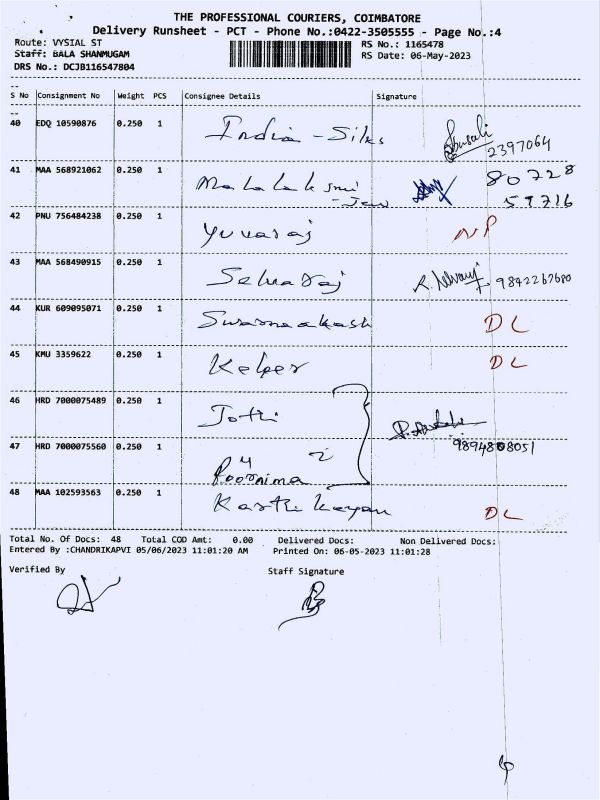 THE PROFESSIONAL COURIERS, COIMBATORE
Delivery Runsheet - PCT - Phone No.:0422-3505555 - Page No.:4
Route: VYSIAL ST RS No.: 1165478
Staff: BALA SHANMUGAM RS Date: 06-May-2023
DRS No.: DCJB116547804
S No Consignment No Weight PCS Consignee Details Signature
40 EDQ 10590876 0.250 1 India - Silks
2397064
41 MAA 568921062 0.250 1 Mahalakshmi 80728
- Jew 59716
42 PNU 756484238 0.250 1 Yuvaraj NP
43 MAA 568490915 0.250 1 Selvaraj 9842267680
44 KUR 609095071 0.250 1 Swarnaakash DL
45 KMU 3359622 0.250 1 DL
46 HRD 7000075489 0.250 1 Jothi
47 HRD 7000075560 0.250 1 2 9894808051
Poornima
48 MAA 102593563 0.250 1 Karthikeyan DL
Total No. Of Docs: 48 Total COD Amt: 0.00 Delivered Docs: Non Delivered Docs:
Entered By :CHANDRIKAPVI 05/06/2023 11:01:20 AM Printed On: 06-05-2023 11:01:28
Verified By Staff Signature